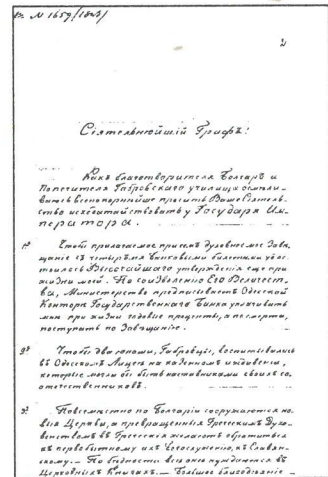 Вх. № 1659/1843/
2
Сіятельнѣйшій Графъ!
Какъ благотворителя Болгаръ и
Попечителя Габровскаго училища осмѣли-
ваюсь всепокорнѣйше просить Ваше Сіятель-
ство исходатайствовать у Государя Им-
ператора.
1е Чтобъ прилагаемое при семъ духовное мое Завѣ-
щаніе съ четырьмя банковыми билетами удо-
стоилось Высочайшаго утвержденія еще при
жизни моей. По соизволенію Его Величест-
ва, Министерство предписываетъ Одесской
Конторѣ Государственнаго Банка уплачивать
мнѣ при жизни годовые проценты, а по смерти,
поступать по Завѣщанію.
2е Чтобы два юноши, Габровцы, воспитывались
въ Одесскомъ Лицеѣ на казенномъ иждивеніи,
которые могли бы быть наставниками своихъ со-
отечественниковъ.
3е Повсемѣстно по Болгаріи сооружаются но-
выя Церкви, а превращенныя Греческимъ Духо-
венствомъ въ Греческія желаютъ обратиться
къ первобытному ихъ богослуженію, къ Славян-
скому. — По бѣдности они нуждаются въ
Церковныхъ Книгахъ. — Большое благодѣяніе —